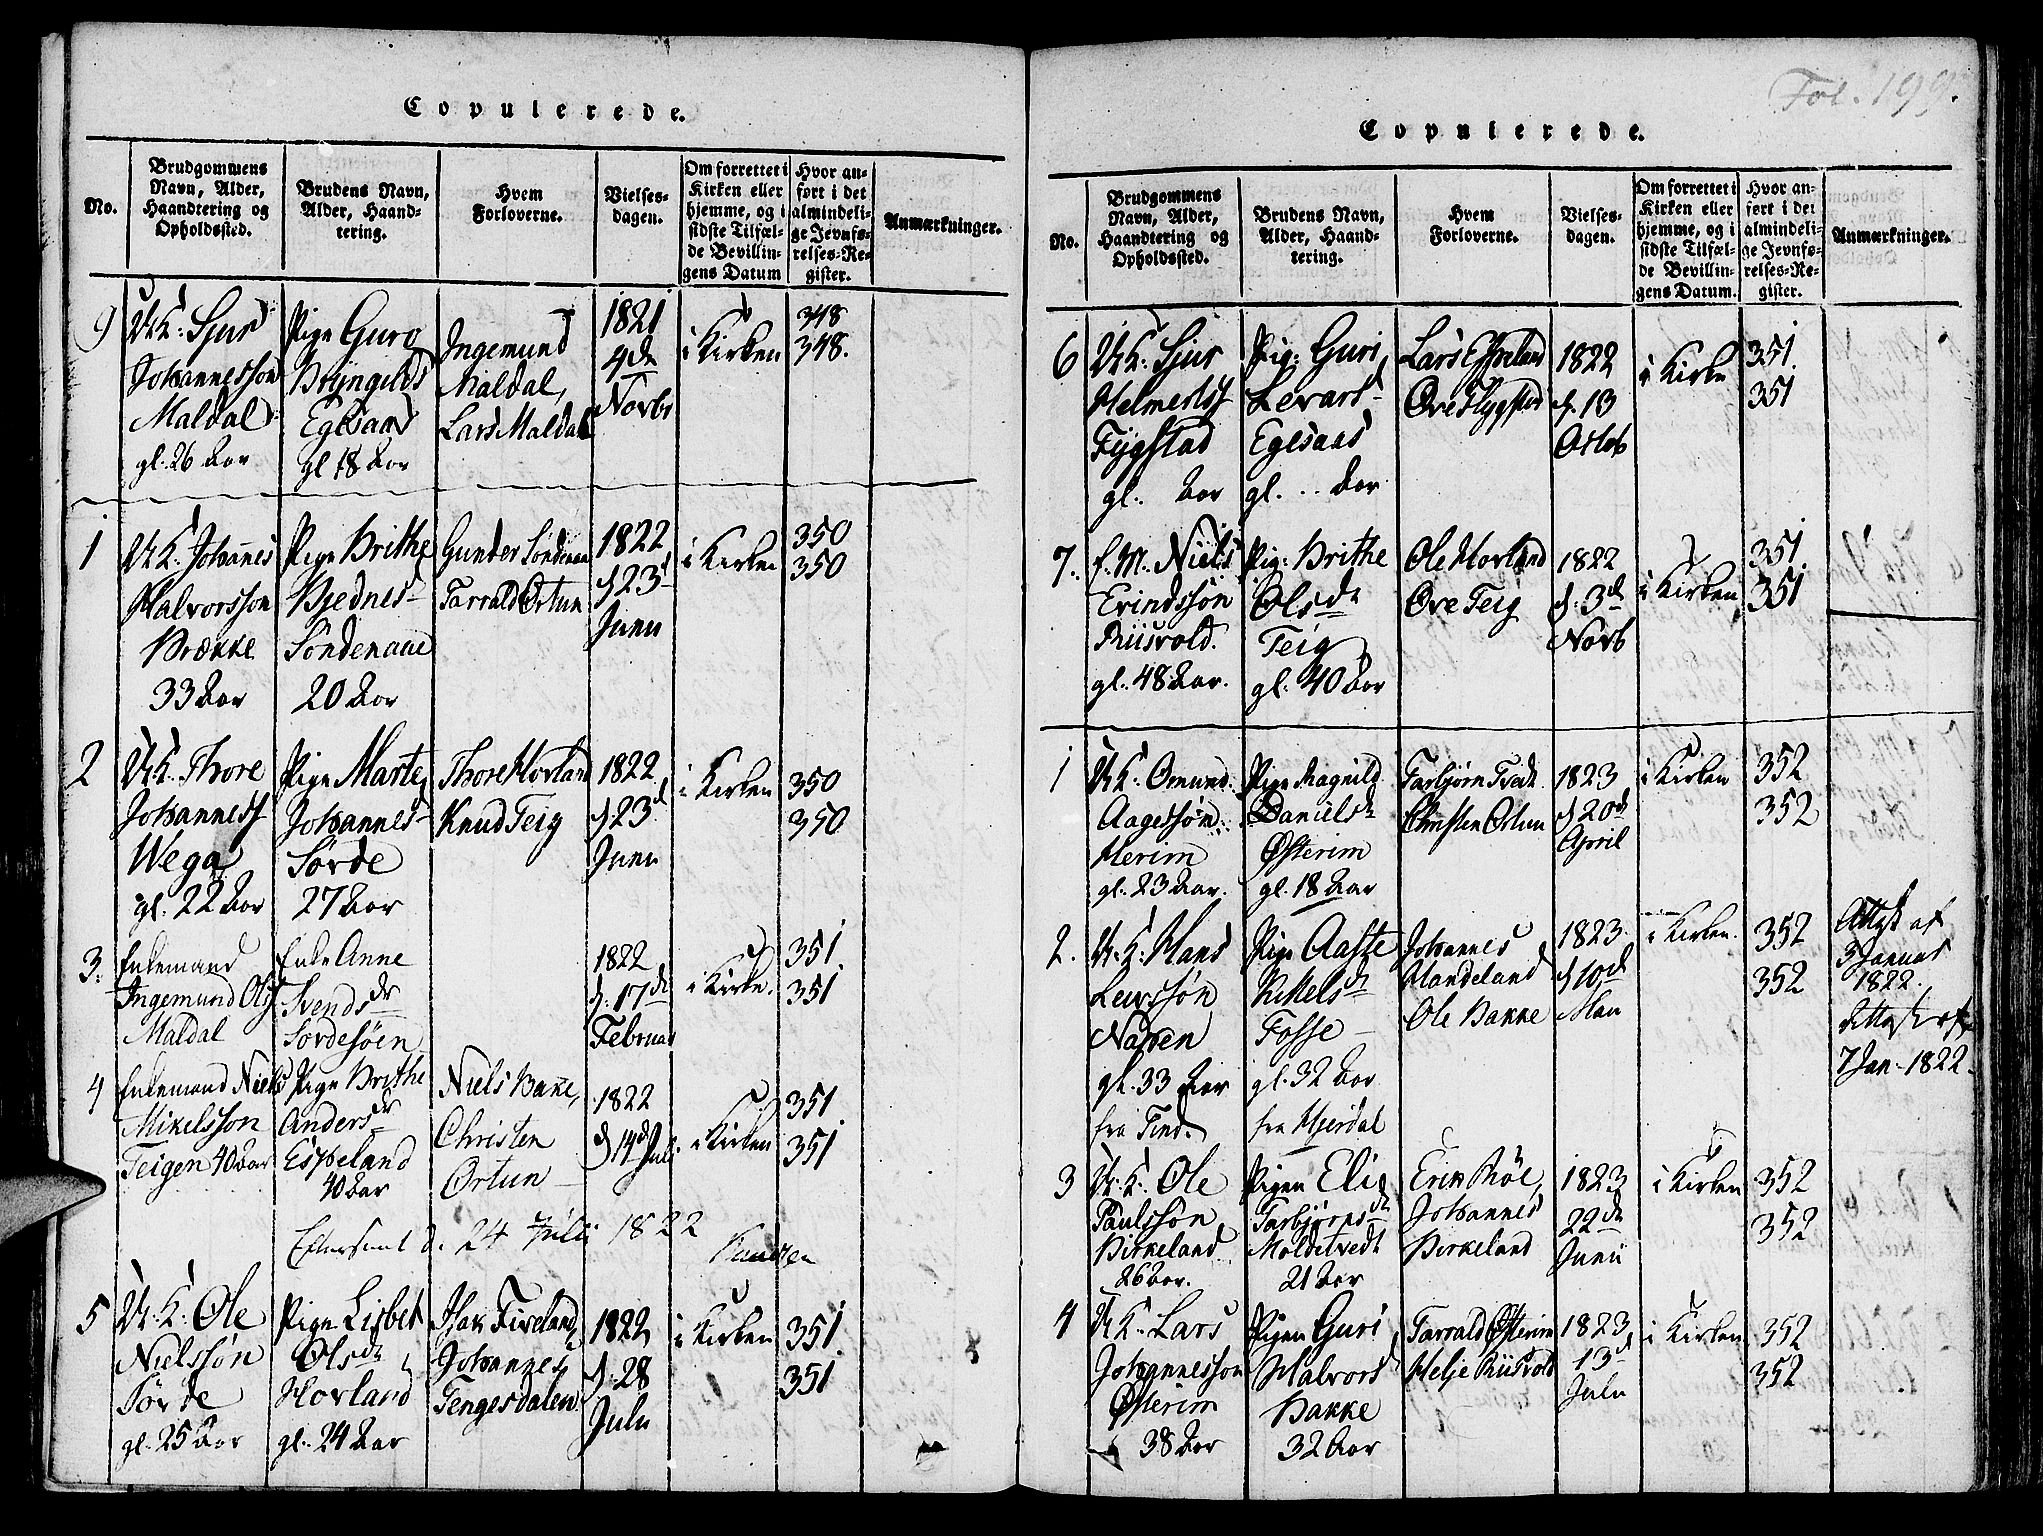 Copulerede.
No.
Brudgommens
Navn, Alder,
Haandtering og
Opholdssted.
Brudens Navn,
Alder, Haand-
tering.
Hvem
Forloverne.
Vielses-
dagen.
Om forrettet i
Kirken eller
hjemme, og i
sidste Tilfæl-
de Bevillin-
gens Datum
Hvor an-
ført i det
almindeli-
ge Jevnfø-
relses-Re-
gister.
Anmærkninger.
9
U.K. Sjur
Johannesson
Maldal
gl. 26 Aar
Pige Guro
Bryngilds
Egesaas
gl 18 Aar
Ingemund
Maldal,
Lars Maldal
1821
4de
Novbr
i Kirken
348
348.
1
U.K. Johannes
Halvorsson
Brække
33 Aar
Pige Brithe
Bjednes-
Söndenaae
20 Aar
Gunder Söndenaa
Tarrald Ortun
1822
d 23
Junii
i Kirken
350
350
2
U.K. Thore
Johanness
Wega
gl. 22 Aar
Pige Marte
Johannes-
Sørde
27 Aar
Thore Hovland
Knud Teig
1822
d 23
Junii
i Kirken
350
350
3.
Enkemand
Ingemund Ols
Maldal
Enke Anne
Svendsdr
Sordesöen
1822
d. 17de
Februar
i Kirke.
351.
351
4
Enkemand Niels
Mikelsson
Teigen 40 Aar
Pige Brithe
Andersdr
Espeland
40 Aar
Niels Bakke,
Christen
Ortun
1822
d 14d Juli
i Kirken
351.
351.
Efterseet d. 24 Julii 1822
5
U.K. Ole
Nielssön
Sørde
gl. 25 Aar
Pige Lisbet
Olsdr
Hovland
gl. 24 Aar
Isak Fireland,
Johannes
Tengesdalen
1822
d. 28
Julii
i Kirken
351.
351
Fol. 199.
Copulerede.
No.
Brudgommens
Navn, Alder,
Haandtering og
Opholdssted.
Brudens Navn,
Alder, Haand-
tering.
Hvem
Forloverne.
Vielses-
dagen.
Om forrettet i
Kirken eller
hjemme, og i
sidste Tilfæl-
de Bevillin-
gens Datum.
Hvor an-
ført i det
almindeli-
ge Jevnfø-
relses-Re-
gister.
Anmærkninger.
6
U.K. Sjur
Helmerts
Fygstad
gl. Aar
Pig: Guri
Levart-
Egesaas
gl. .. Aar
Lars
Ove Flygstad
1822
d. 13
Octob
i Kirke
351.
351
7.
E.M. Niels
Erindssön
Riisvold.
gl. 48 Aar.
Pig: Brithe
Olsdr
Teig
gl. 40 Aar
Ole Hovland
Ove Teig
1822
d. 3de
Novb
i Kirken
351.
351
1
U.K. Omund
Aagessön
Herim
gl. 23 Aar.
Pige Magnild
Danielsdr
Østerim
gl. 18 Aar
Tarbjørn Tvedt
Christen Ortun
1823
d 20de
April
i Kirken
352
352
2.
U.K. Hans
Levssön
gl. 33 Aar
fra Tind.
Pige Aaste
Kittelsdr
Fosse
gl. 32 Aar
fra Hjerdal
Johannes
Handeland
Ole Bakke
1823.
d 10de
Maii
i Kirken.
352
352
Attest af
3 Januar
1822.
Attest af
7 Jan. 1822.
3
U.K. Ole
Paulssön
Birkeland
26 Aar.
Pigen Elie
Tarbjörnsdr
Moldetvedt
21 Aar
Erik Röe,
Johannes
Birkeland
1823
22de
Junii
i Kirken
352
352
4
U.K. Lars
Johannesson
Østerim
38 Aar
Pigen Guri
Halvors
Bakke
32 Aar
Tarrald Østerim
Helje Riisvold
1823
13d
Julii
i Kirken
352
352